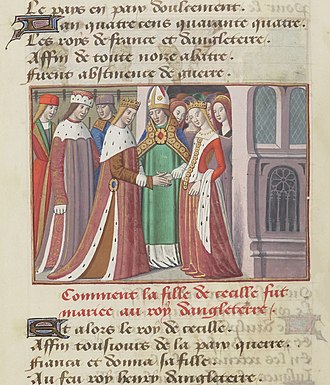 Le pays en paix doulcement.
Lan quatre cens quarante quatre.
Les roys de france et dangleterre.
Affin de toute noize abatre.
Furent abstinence de guerre.
Comment la fille de cecille fut
mariee au roy dangleterre.
Et alors le roy de cecille.
Affin tousiours de la paix querre.
Franca et donna sa fille.
Au feu roy henry dangleterre.